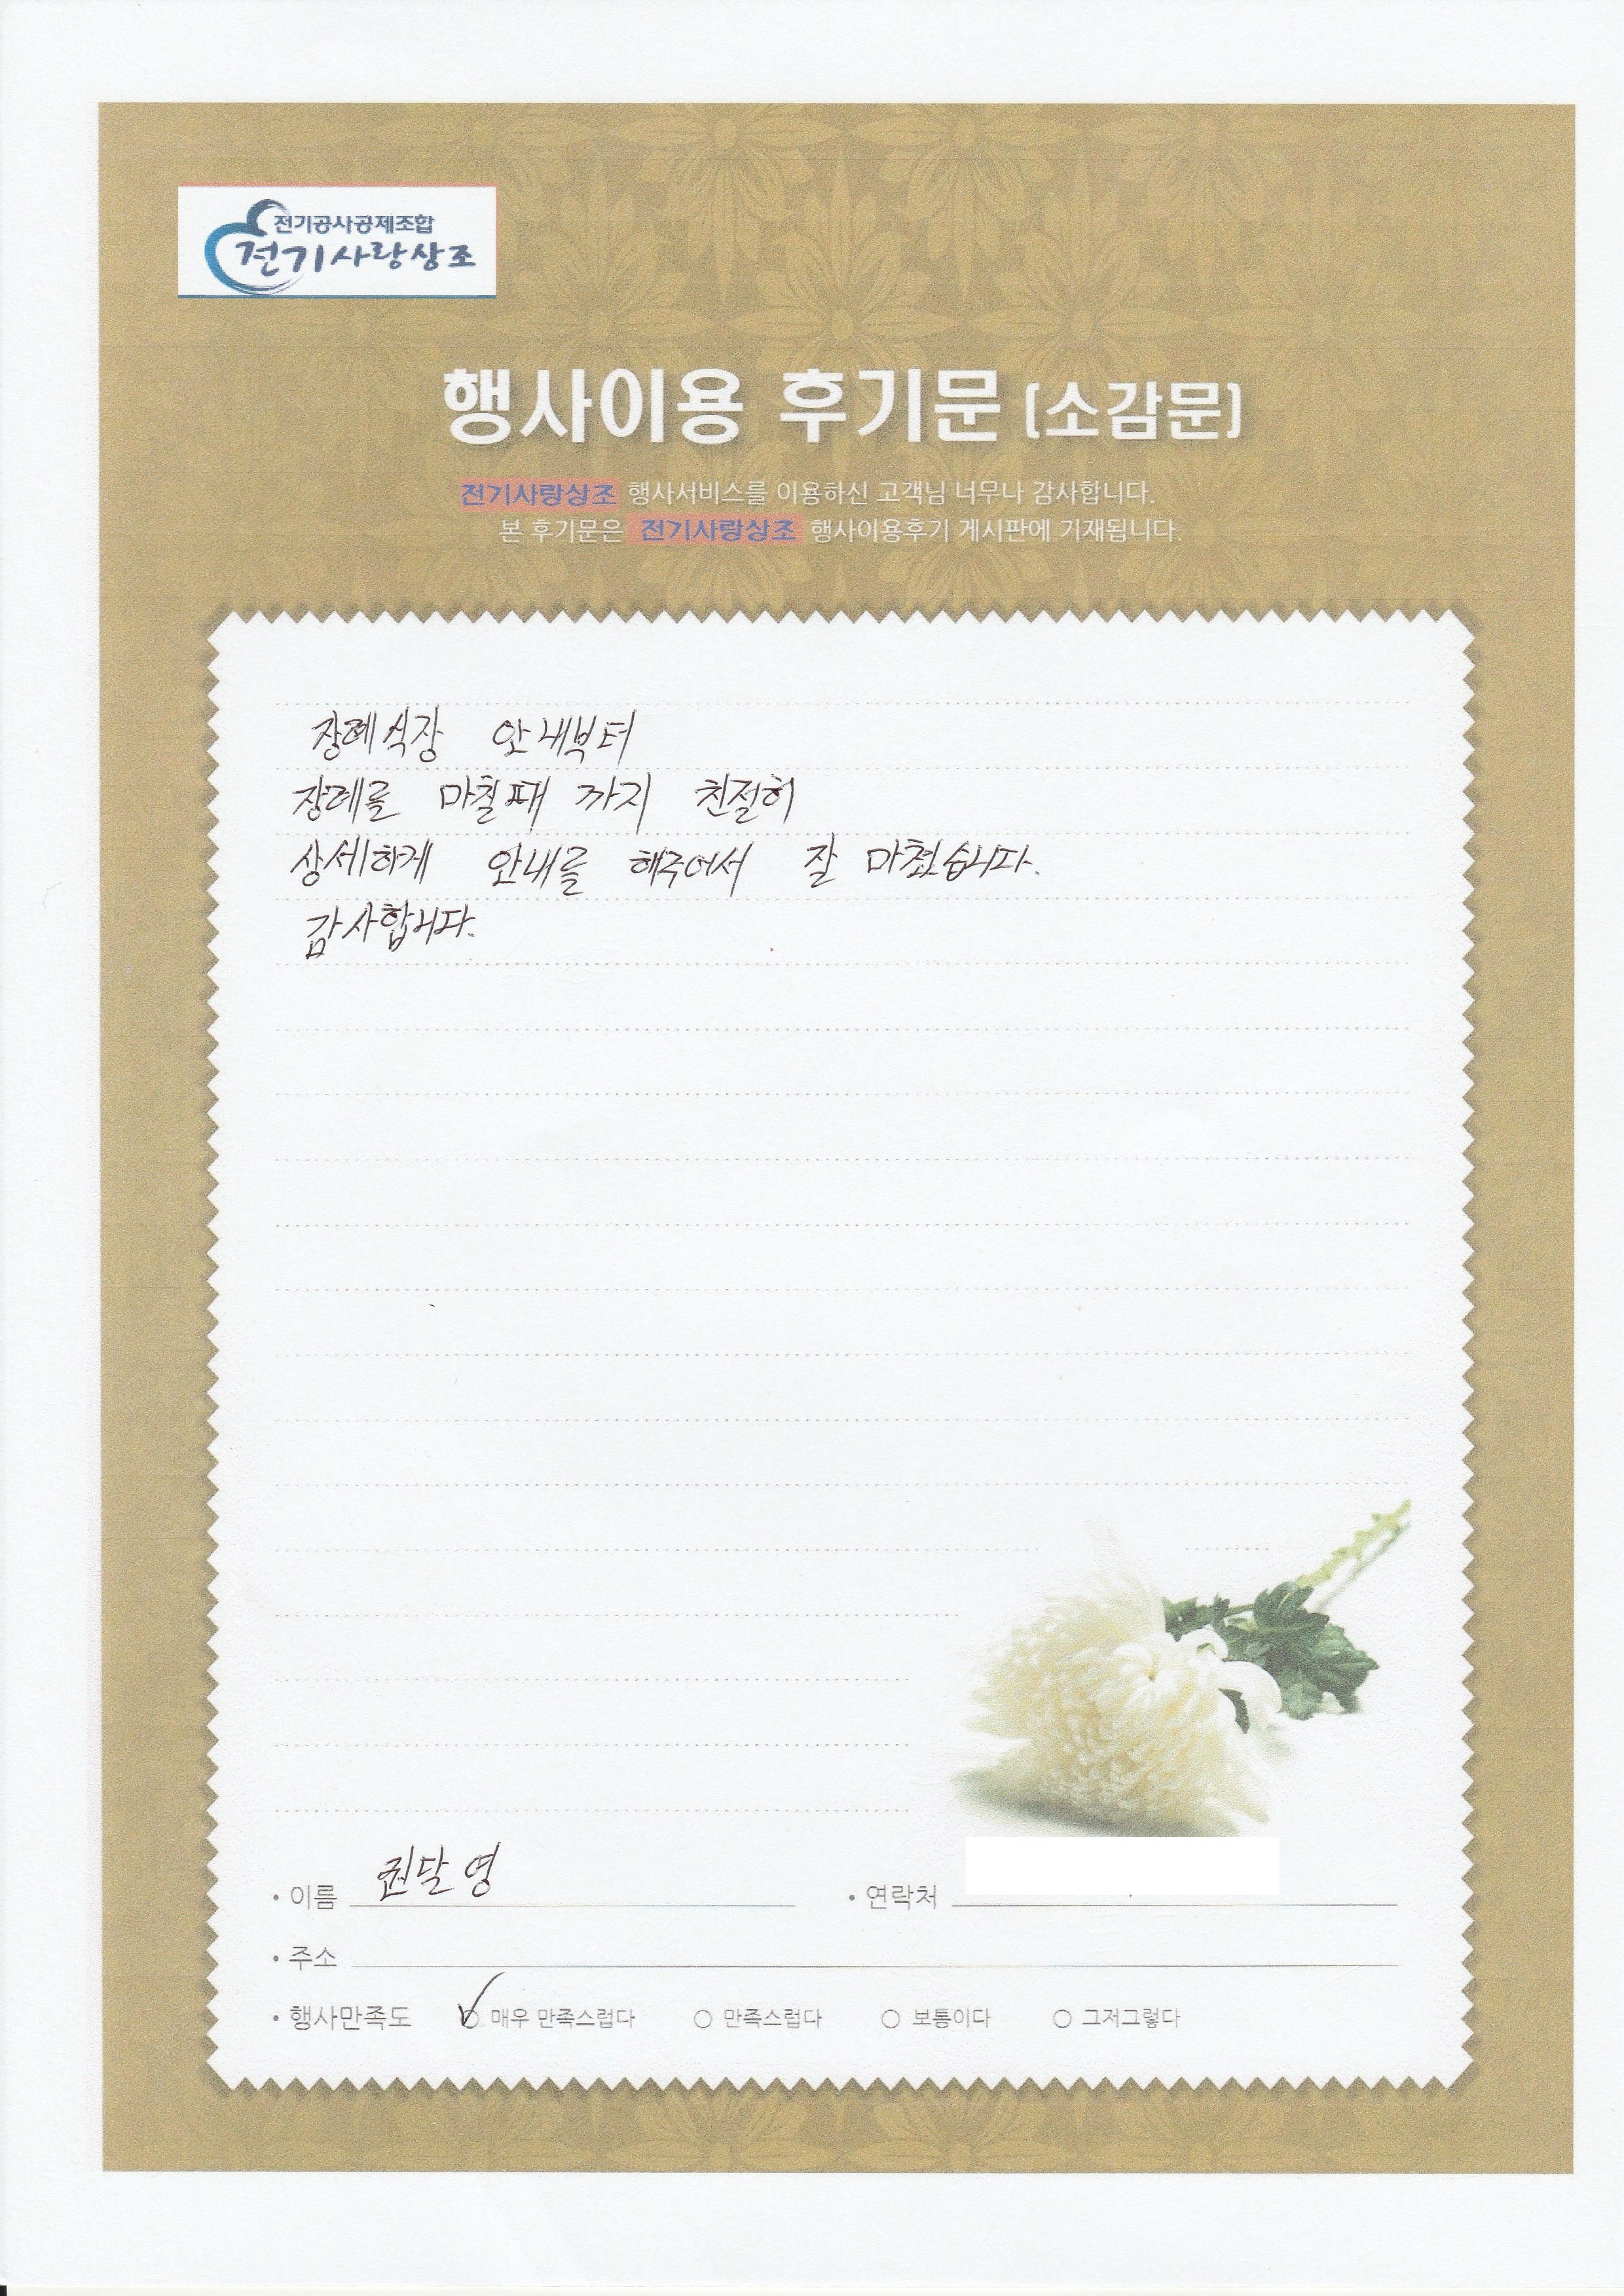 전기공사공제조합
전기사랑상조
행사이용 후기문 (소감문)
전기사랑상조 행사서비스를 이용하신 고객님 너무나 감사합니다.
본 후기문은 전기사랑상조 행사이용후기 게시판에 기재됩니다.
장례식장 안내부터
장례를 마칠때 까지 친절히
상세하게 안내를 해주어서 잘 마쳤습니다.
감사합니다.
• 이름 권달영 • 연락처
• 주소
• 행사만족도 ○ 매우 만족스럽다 ○ 만족스럽다 ○ 보통이다 ○ 그저그렇다